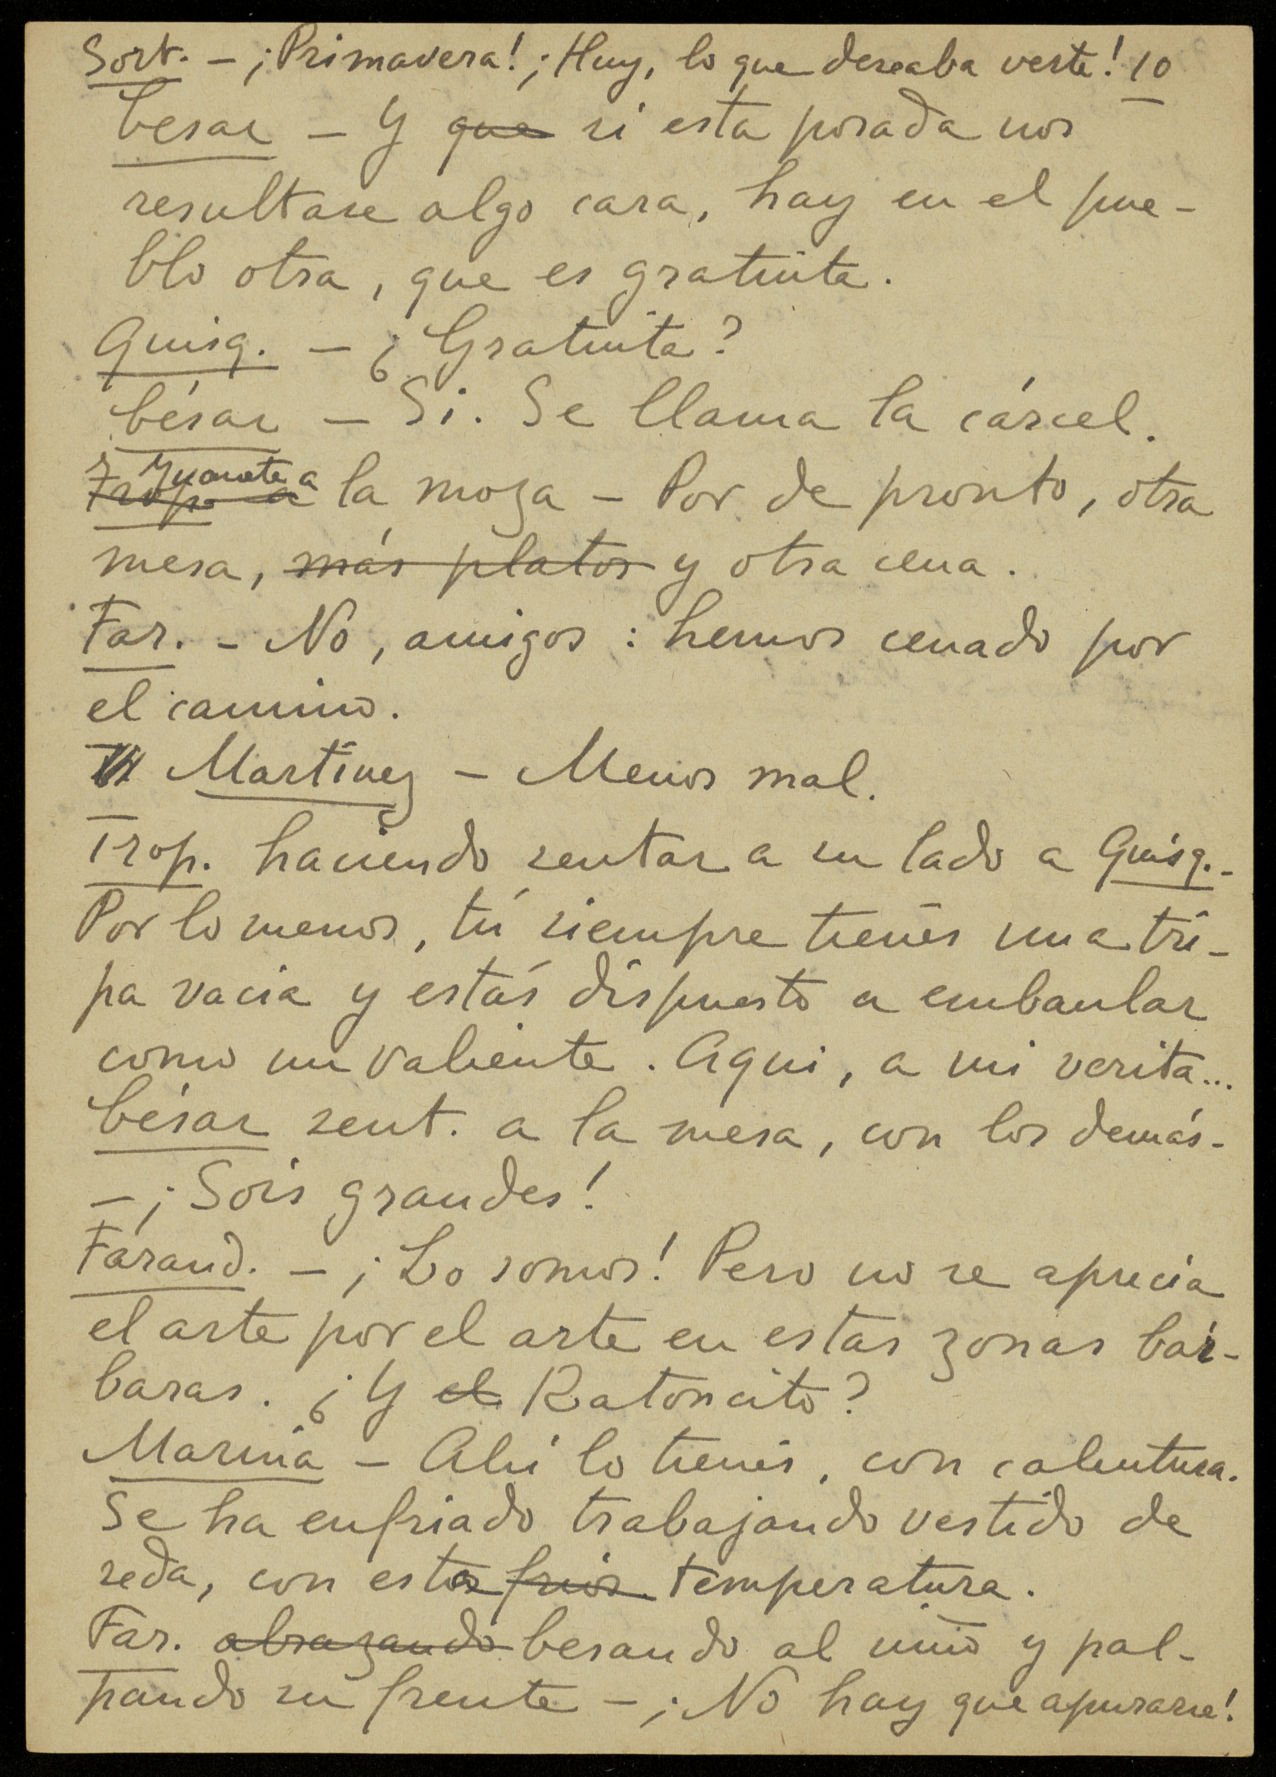 Sort. - ¡Primavera! ¡Huy, lo que deseaba verte! 10
César - Y que si esta posada nos
resultase algo cara, hay en el pue-
blo otra, que es gratuita.
Quisq. - ¿Gratuita?
César - Si. Se llama la cárcel.
Trop. a Juanete a la moza - Por de pronto, otra
mesa, más platos y otra cena.
Far. - No, amigos: hemos cenado por
el camino.
Martínez - Menos mal.
Trop. haciendo sentar a su lado a Quisq. -
Por lo menos, tú siempre tienes una tri-
pa vacia y estás dispuesto a embaular
como un valiente. Aqui, a mi verita...
César sent. a la mesa, con los demás -
- ¡Sois grandes!
Farand. - ¡Lo somos! Pero no se aprecia
el arte por el arte en estas zonas bár-
baras. ¿Y el Ratoncito?
Marina - Ahí lo tienes, con calentura.
Se ha enfriado trabajando vestido de
seda, con esta frios temperatura.
Far. abrazando besando al niño y pal-
pando su frente - ¡No hay que apurarse!